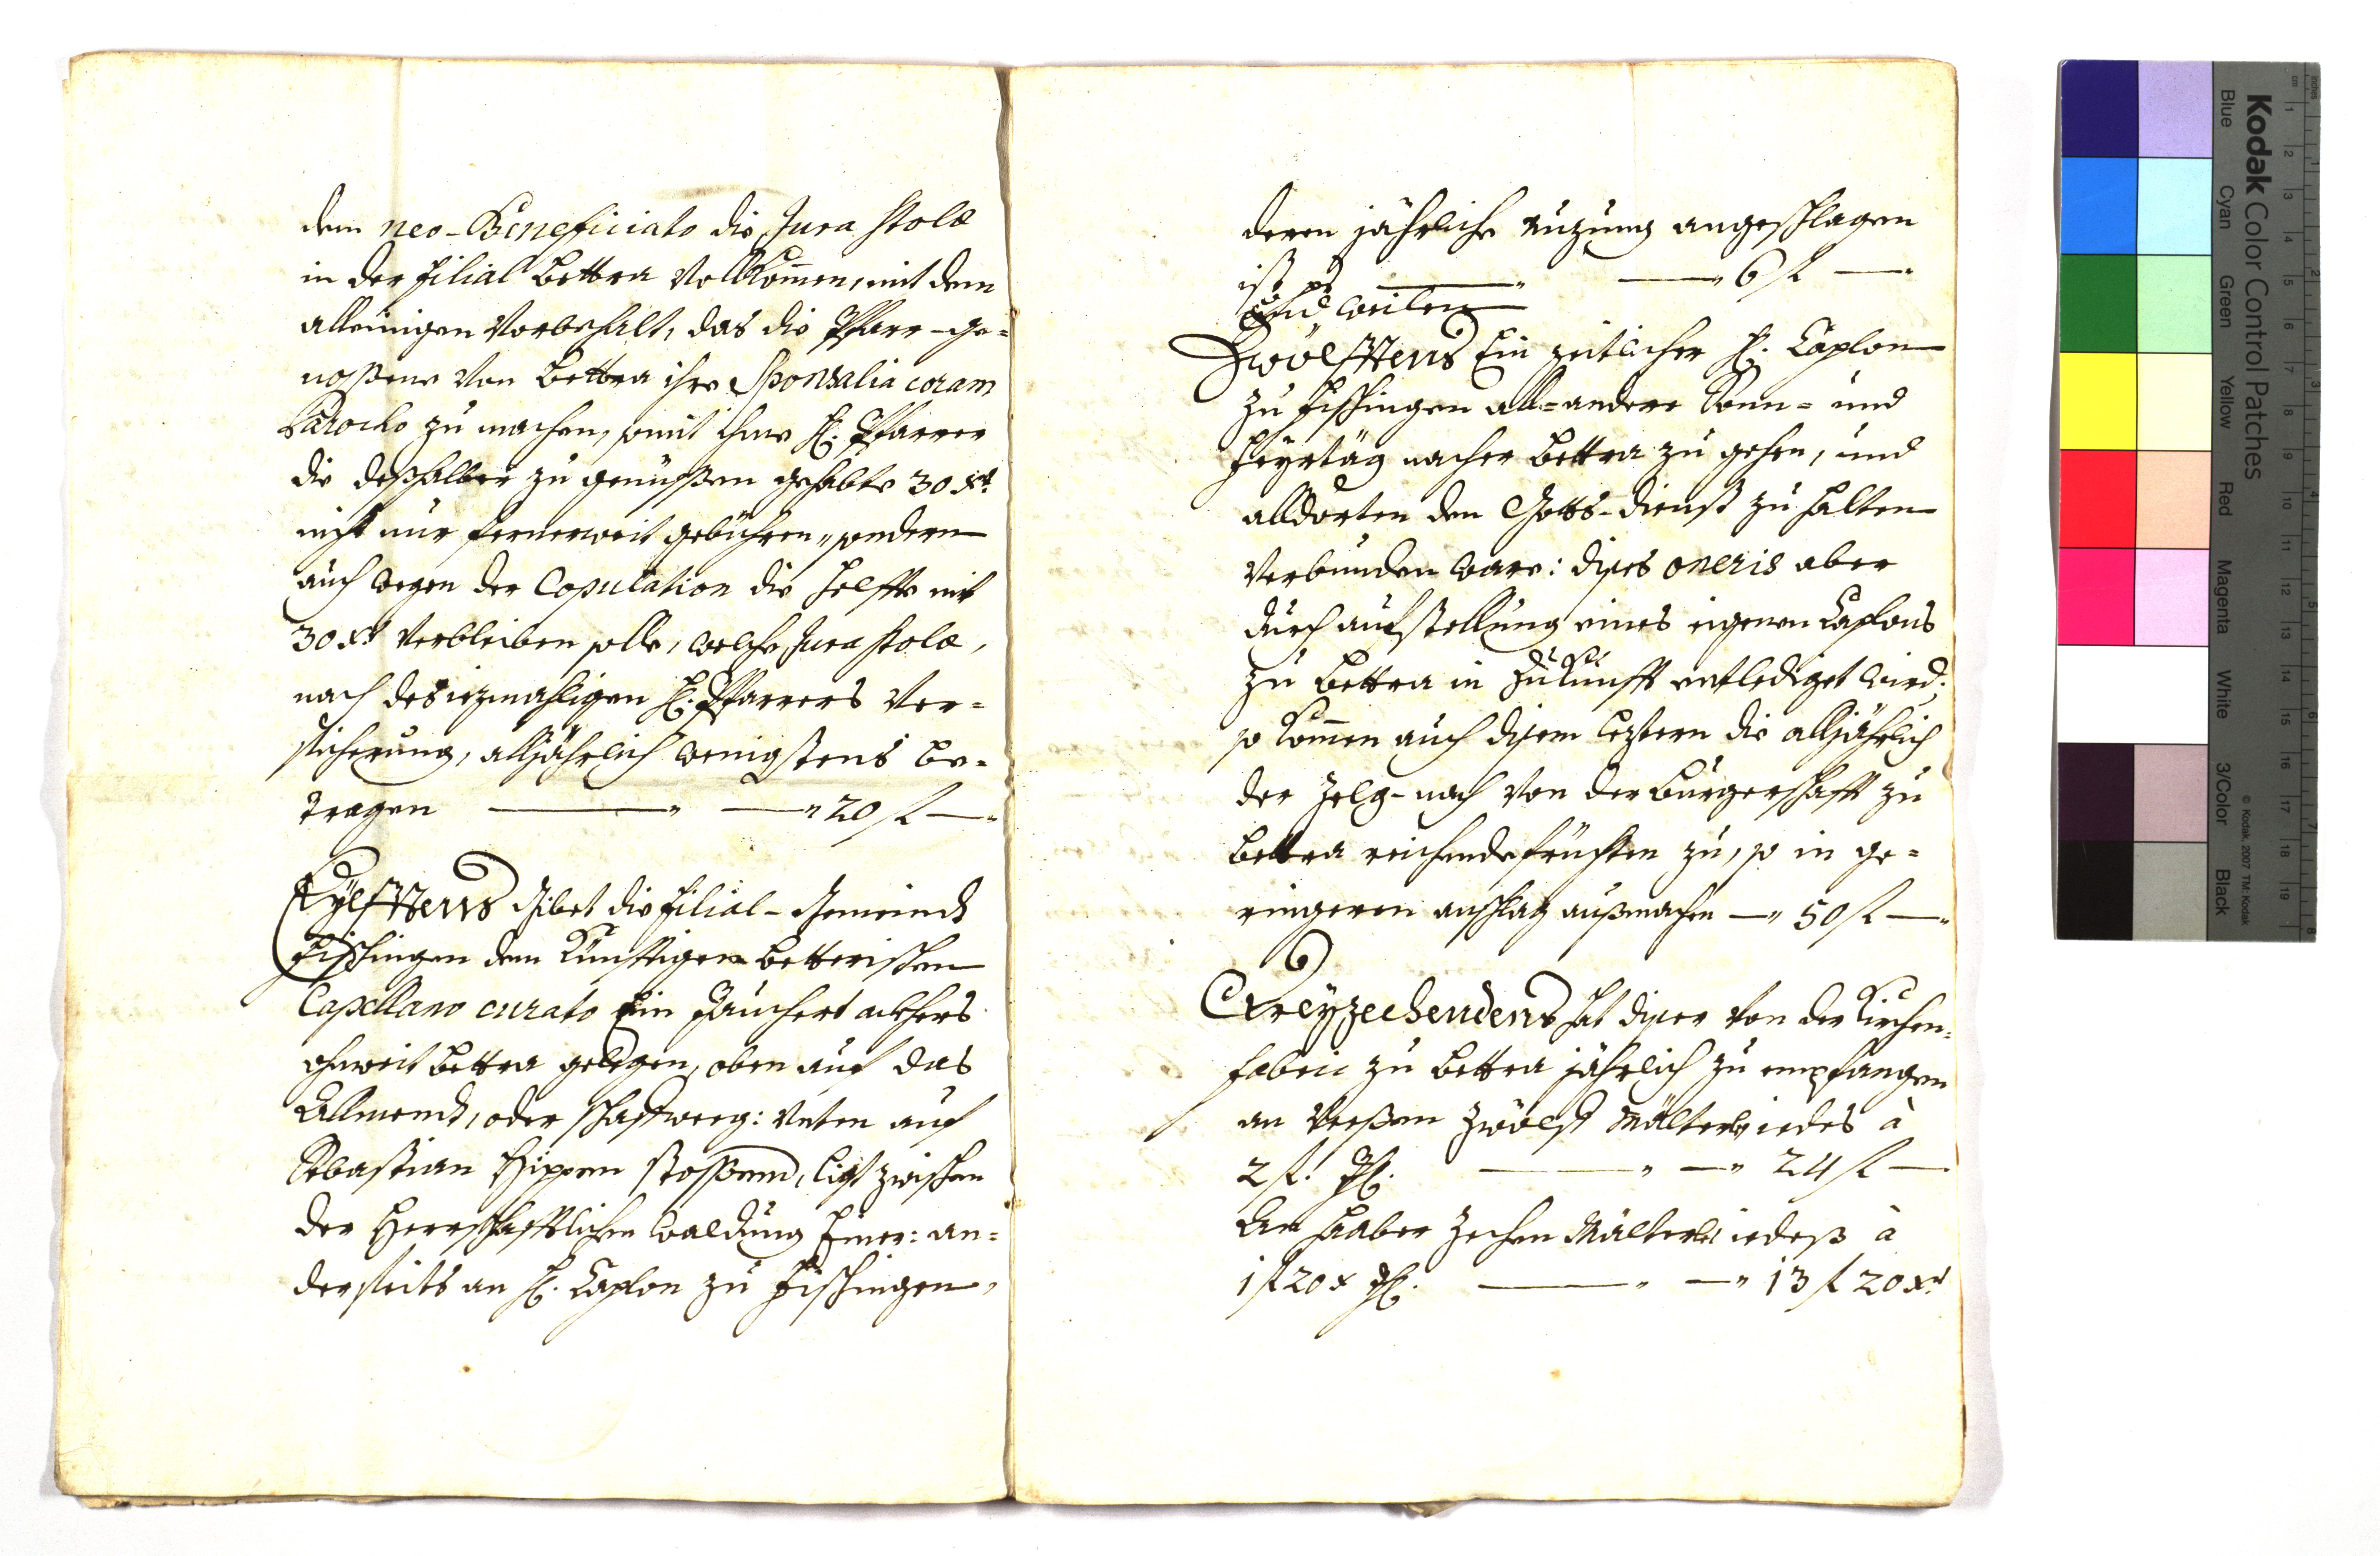 dem neo-Beneficiato die Jura stolæ
in der Filial Bettra Vollkom̅en, mit dem
alleinigen Vorbehalt, das die Pfarr-ge=
nossene von Bettra ihre Sponsalia coram
Parocho zu machen, somit ihme H. Pfarrer
die deßhalber zu genüssen gehabte 30 xr.
nicht nur fernerweit gebühren, sondern
auch wegen der Copulation die helffte mit
30 xr verbleiben solle, welche Jura stolæ,
nach des iezmahligen H. Pfarrers Ver=
sicherung, alljährlich wenigstens be=
tragen — " — " 20 fl — "
Eylfftens Gibet die Filial-Gemeind
Fischingen dem künfftigen Betterischen
Capellano curato Ein Jauchert ackhers
ohnweit Bettra gelegen, oben auf das
Allmend, oder schaffweeg: Unten auf
Sebastian Hippen stossend, ligt zwischen
der Herrschafftlichen waldung Einer: an=
derseits an H. Caplon zu Fischingen,
deren jährliche nuzung angeschlagen
ist pr — " — " 6 fl — "
Und weilen
Zwölfftens Ein zeitlicher H. Caplon
zu Fischingen all=andere Sonn= und
Feyrtäg nacher Bettra zu gehen, und
alldorten den Gotts-dienst zu halten
verbunden ware: dises oneris aber
durch aufstellung eines eigenen Caplons
zu Bettra in Zukunfft entlediget wird;
so kom̅en auch disem leztern die alljährlich
der Zelg-nach von der Burgerschafft zu
Bettra reichende früchten zu, so in ge=
ringeren anschlag außmachen — " 50 fl — "
Dreyzechendens hat diser von der Kirchen=
fabric zu Bettra jährlich zu empfangen
an Veesen zwölf Mälter iedes à
2 fl. — " — " 24 fl —
An Haaber zechen Mälter iedeß à
1 fl 20 x — " — " 13 fl 20 xr
Kodak Color Control Patches
Blue Cyan Green Yellow Red Magenta White 3/Color Black
© Kodak, 2007 TM: Kodak
inches 1 2 3 4 5 6 7 8
cm 1 2 3 4 5 6 7 8 9 10 11 12 13 14 15 16 17 18 19